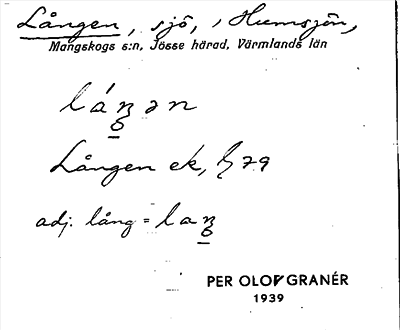 Lången, sjö, i Humsjön,
Mangskogs s:n, Jösse härad, Värmlands län
Lången ek, § 79
adj. lång =
PER OLOF GRANÉR
1939